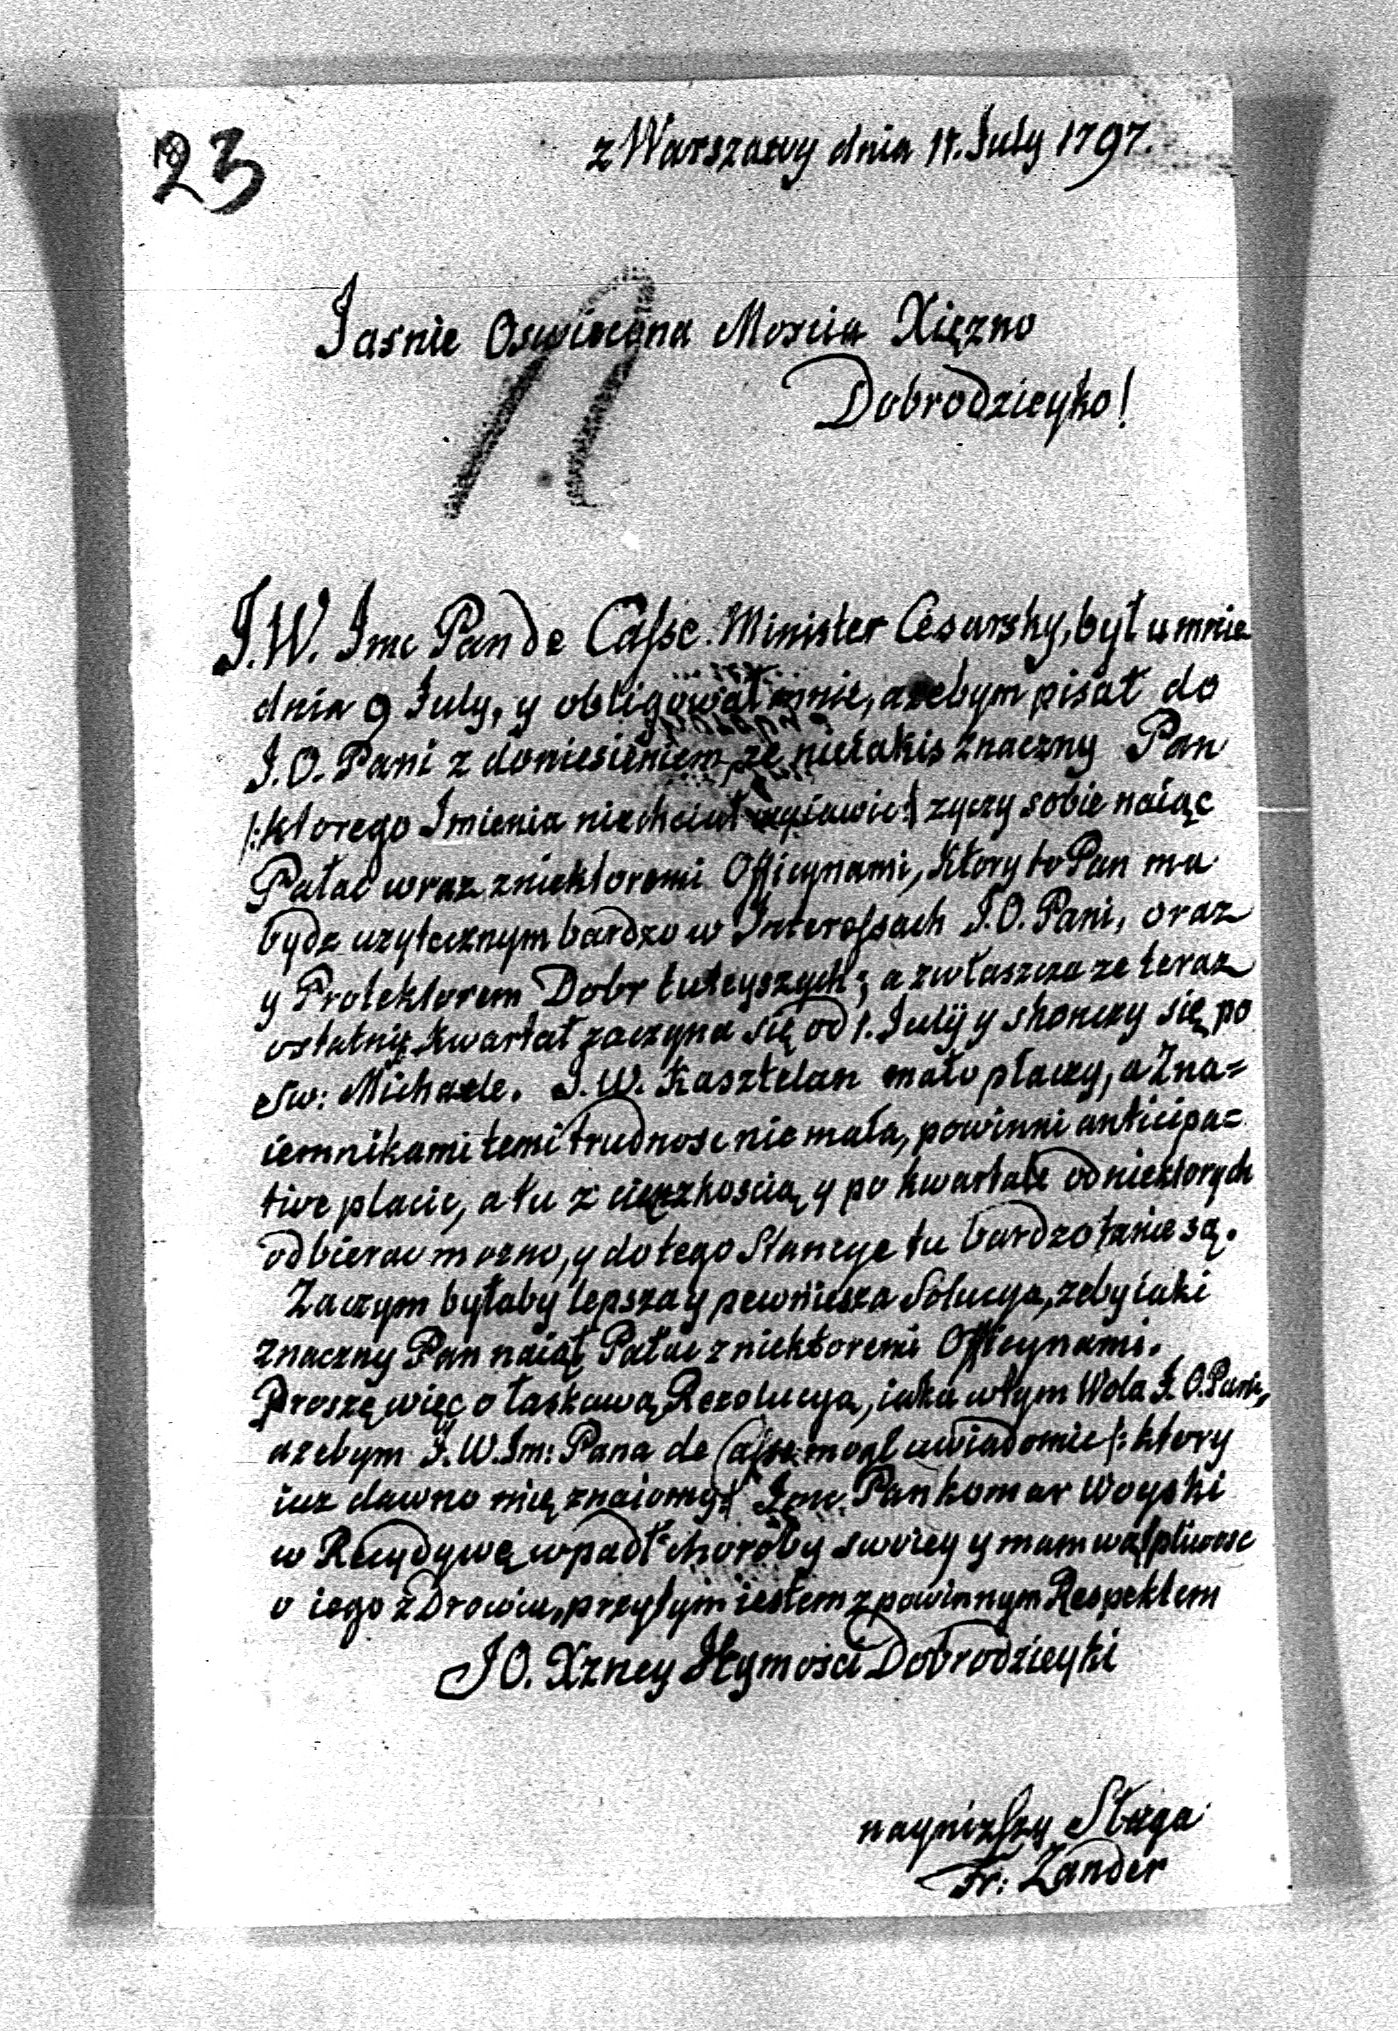 23
z Warszawy dnia 11. July 1797.
Jasnie Oswiecona Moscia Xięzno
Dobrodzieyko!
J. W. Imc Pan de Casse. Minister Cesarsky, był u mnie
dnia 9 July, y obligował mnie, azebym pisał do
J. O. Pani z doniesieniem, ze nieiakis znaczny Pan
/: ktorego Imienia niechciał wyiawic :/ zyczy sobie naiąc
Pałac wraz z niektoremi Officynami, Ktory to Pan ma
bydz uzytecznym bardzo w Interessach J. O. Pani, oraz
y Protektorem Dobr tuteyszych; a zwłaszcza ze teraz
ostatnię Kwartał zaczyna się od 1. Julij y skonczy się po
Sw: Michale. J. W. Kasztelan mało płaczy, a Zna=
iemnikami temi trudnosc nie mała, powinni anticipa=
tive placic, a tu z cięzkoscią y po kwartale od niektorych
odbierac mozno, y do tego Stancye tu bardzo tanie są.
Zaczym byłaby lepsza y pewnieysza Solucya, zeby iaki
znaczny Pan naiął Pałac z niektoremi Officynami.
Proszę więc o łaskawą Rezolucyą, iaka w tym Wola J. O. Pani,
azebym J. W. Im: Pana de Casse mogl uwiadomic /: ktory
iuz dawno mię znaiomy :/ Imc. Pan komar Woyski
w Recydywę wpadł choroby swoiey y mam wątpliwosc
o iego zDrowiu, przytym iestem z powinnym Respektem
JO. Xzney Jeymosci Dobrodzieyki
naynizszy Sługa
Fr: Zander